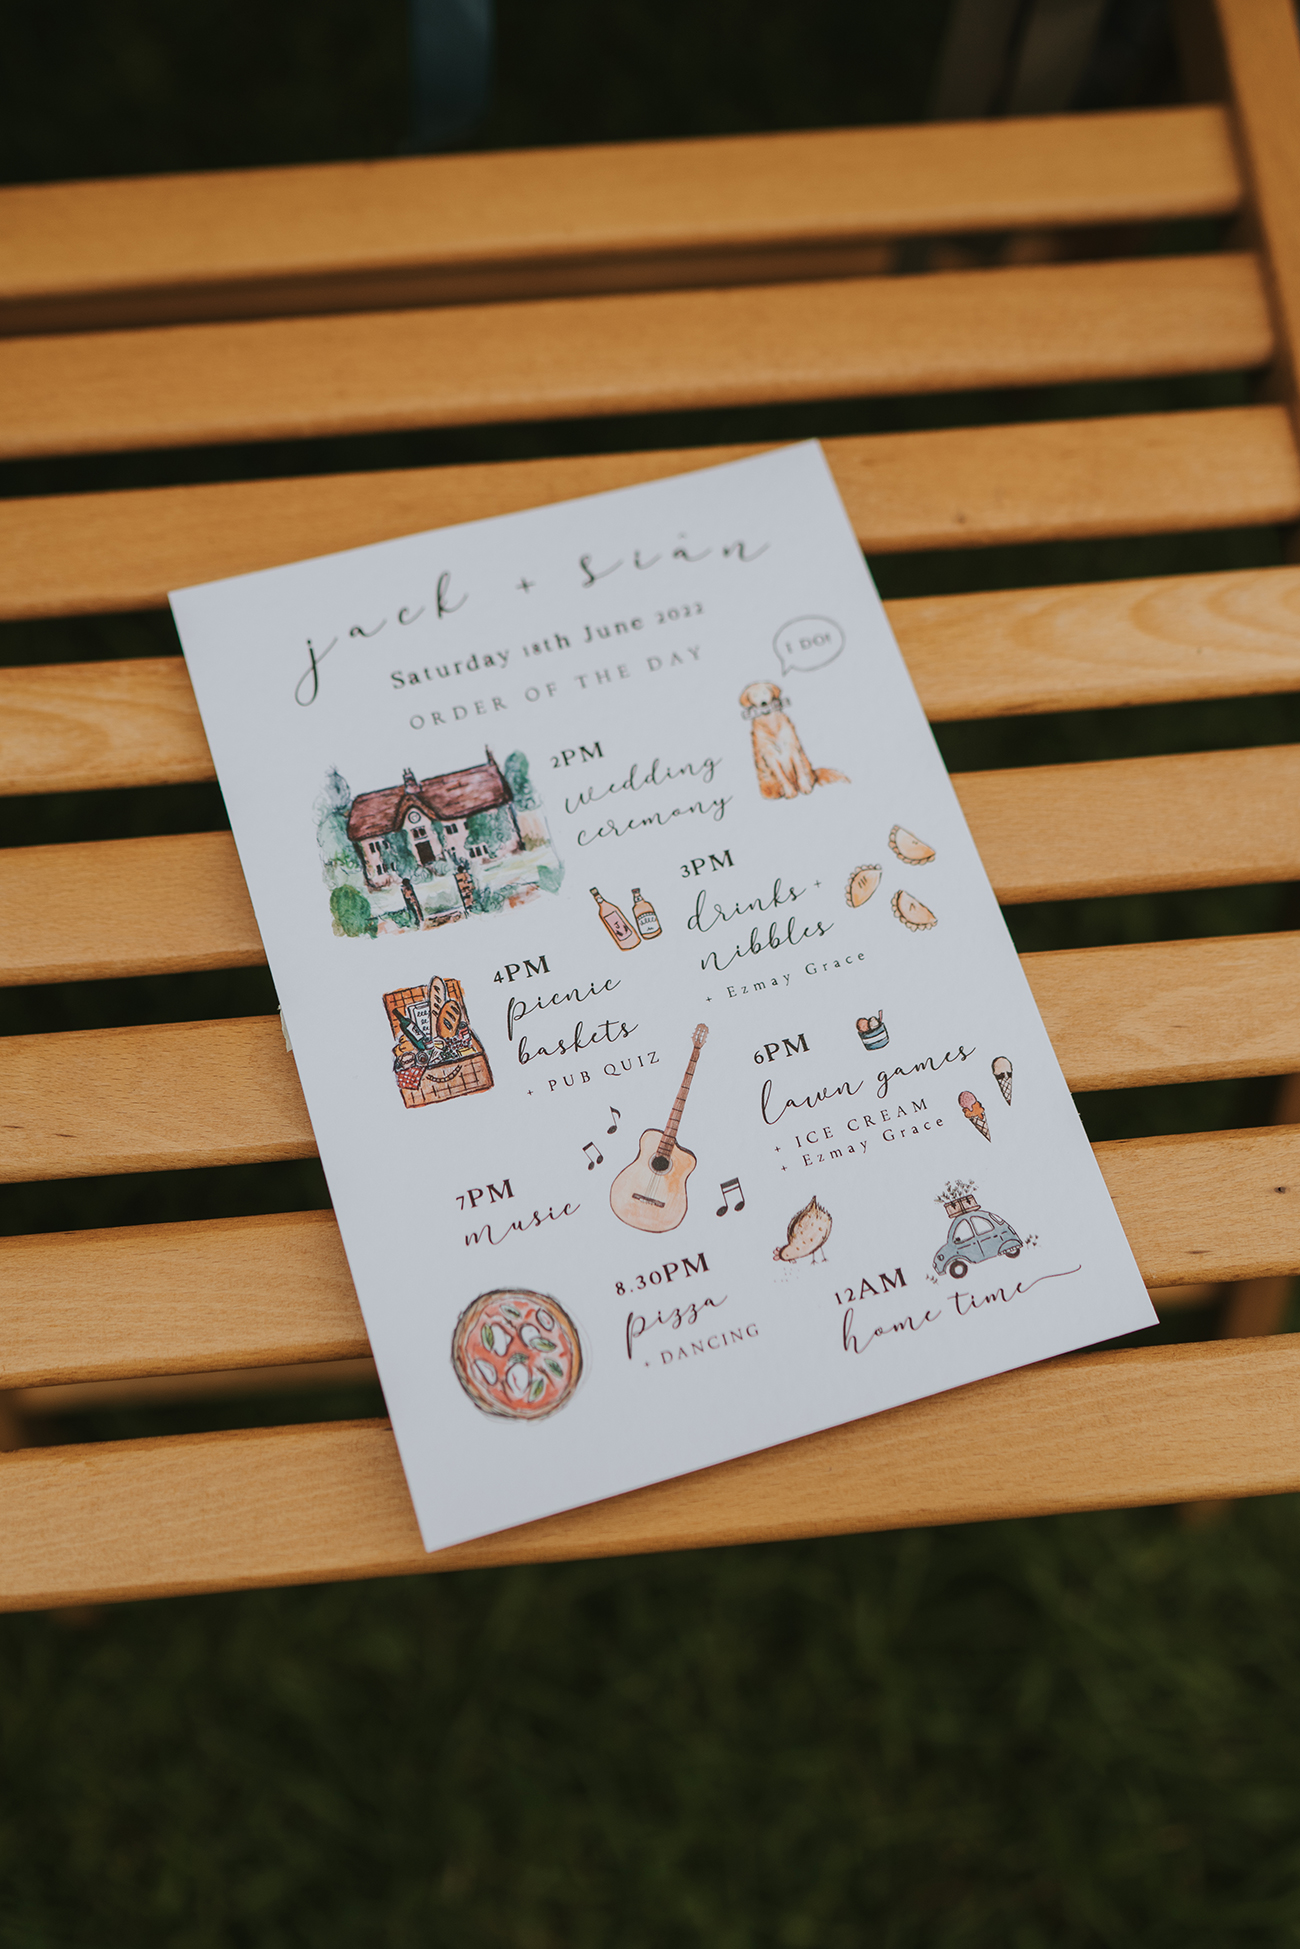 jack + Siân
Saturday 18th June 2022
ORDER OF THE DAY
I DO!
2PM
wedding
ceremony
3PM
drinks +
nibbles
+ Ezmay Grace
4PM
picnic
baskets
+ PUB QUIZ
6PM
lawn games
+ ICE CREAM
+ Ezmay Grace
7PM
music
8.30PM
pizza
+ DANCING
12AM
home time